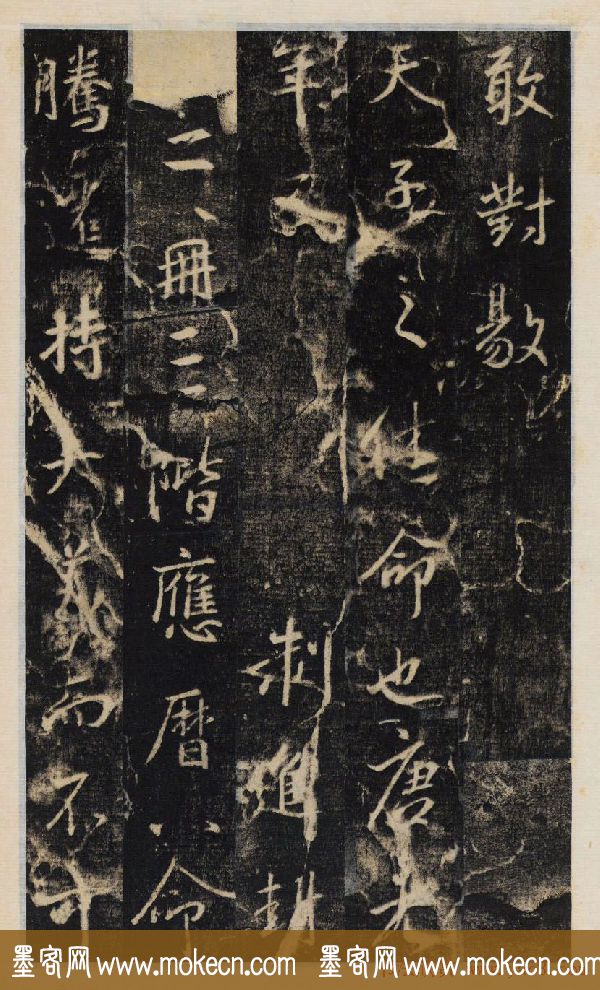 敢對敭
天子之休命也唐元
年
制進
二冊三階應曆八命
騰遷持大義而不
墨客网 www.mokecn.com 墨客网 www.mokecn.com